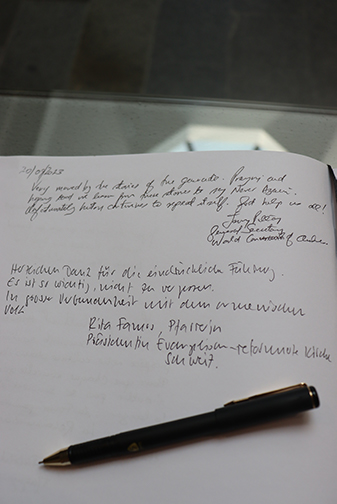 20/09/2023
Very moved by the stories of the genocide. Praying and
hoping that we learn from these stories to say Never Again.
Unfortunately history continues to repeat itself. God help us all!
Jerry Pillay
General Secretary
World Council of Churches
Herzlichen Dank für die eindrückliche Führung.
Es ist so wichtig, nicht zu vergessen.
In grosser Verbundenheit mit dem armenischen
Volk
Rita Famos, Pfarrerin
Präsidentin Evangelisch-reformierte Kirche
Schweiz.